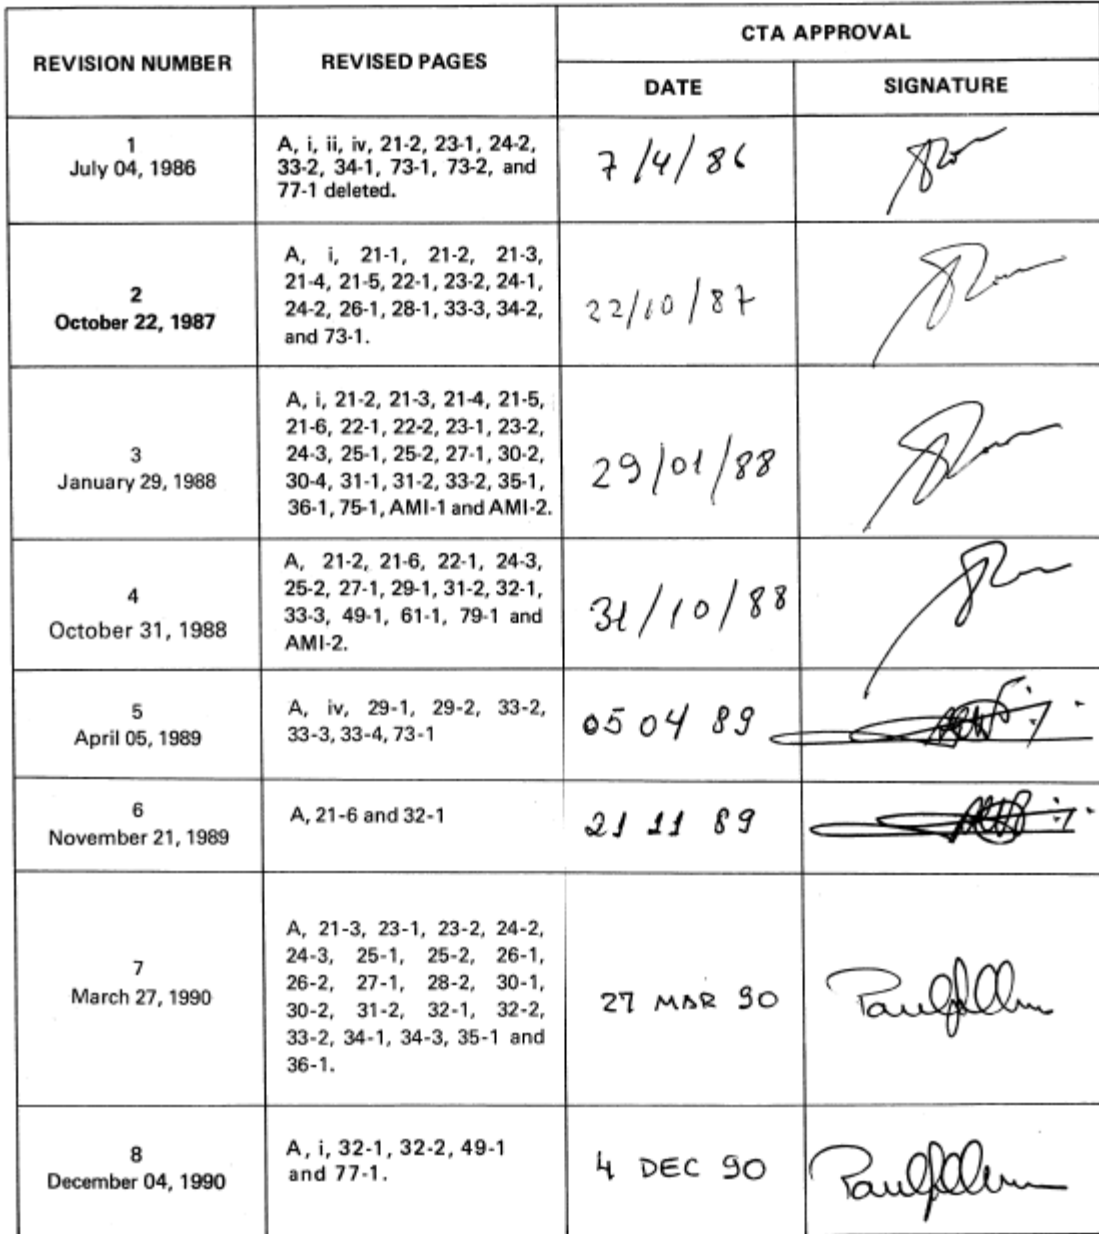 REVISION NUMBER
REVISED PAGES
CTA APPROVAL
DATE
SIGNATURE
1
July 04, 1986
A, i, ii, iv, 21-2, 23-1, 24-2,
33-2, 34-1, 73-1, 73-2, and
77-1 deleted.
7/4/86
2
October 22, 1987
A, i, 21-1, 21-2, 21-3,
21-4, 21-5, 22-1, 23-2, 24-1,
24-2, 26-1, 28-1, 33-3, 34-2,
and 73-1.
22/10/87
3
January 29, 1988
A, i, 21-2, 21-3, 21-4, 21-5,
21-6, 22-1, 22-2, 23-1, 23-2,
24-3, 25-1, 25-2, 27-1, 30-2,
30-4, 31-1, 31-2, 33-2, 35-1,
36-1, 75-1, AMI-1 and AMI-2.
29/01/88
4
October 31, 1988
A, 21-2, 21-6, 22-1, 24-3,
25-2, 27-1, 29-1, 31-2, 32-1,
33-3, 49-1, 61-1, 79-1 and
AMI-2.
31/10/88
5
April 05, 1989
A, iv, 29-1, 29-2, 33-2,
33-3, 33-4, 73-1
05 04 89
6
November 21, 1989
A, 21-6 and 32-1
21 11 89
7
March 27, 1990
A, 21-3, 23-1, 23-2, 24-2,
24-3, 25-1, 25-2, 26-1,
26-2, 27-1, 28-2, 30-1,
30-2, 31-2, 32-1, 32-2,
33-2, 34-1, 34-3, 35-1 and
36-1.
27 MAR 90
8
December 04, 1990
A, i, 32-1, 32-2, 49-1
and 77-1.
4 DEC 90